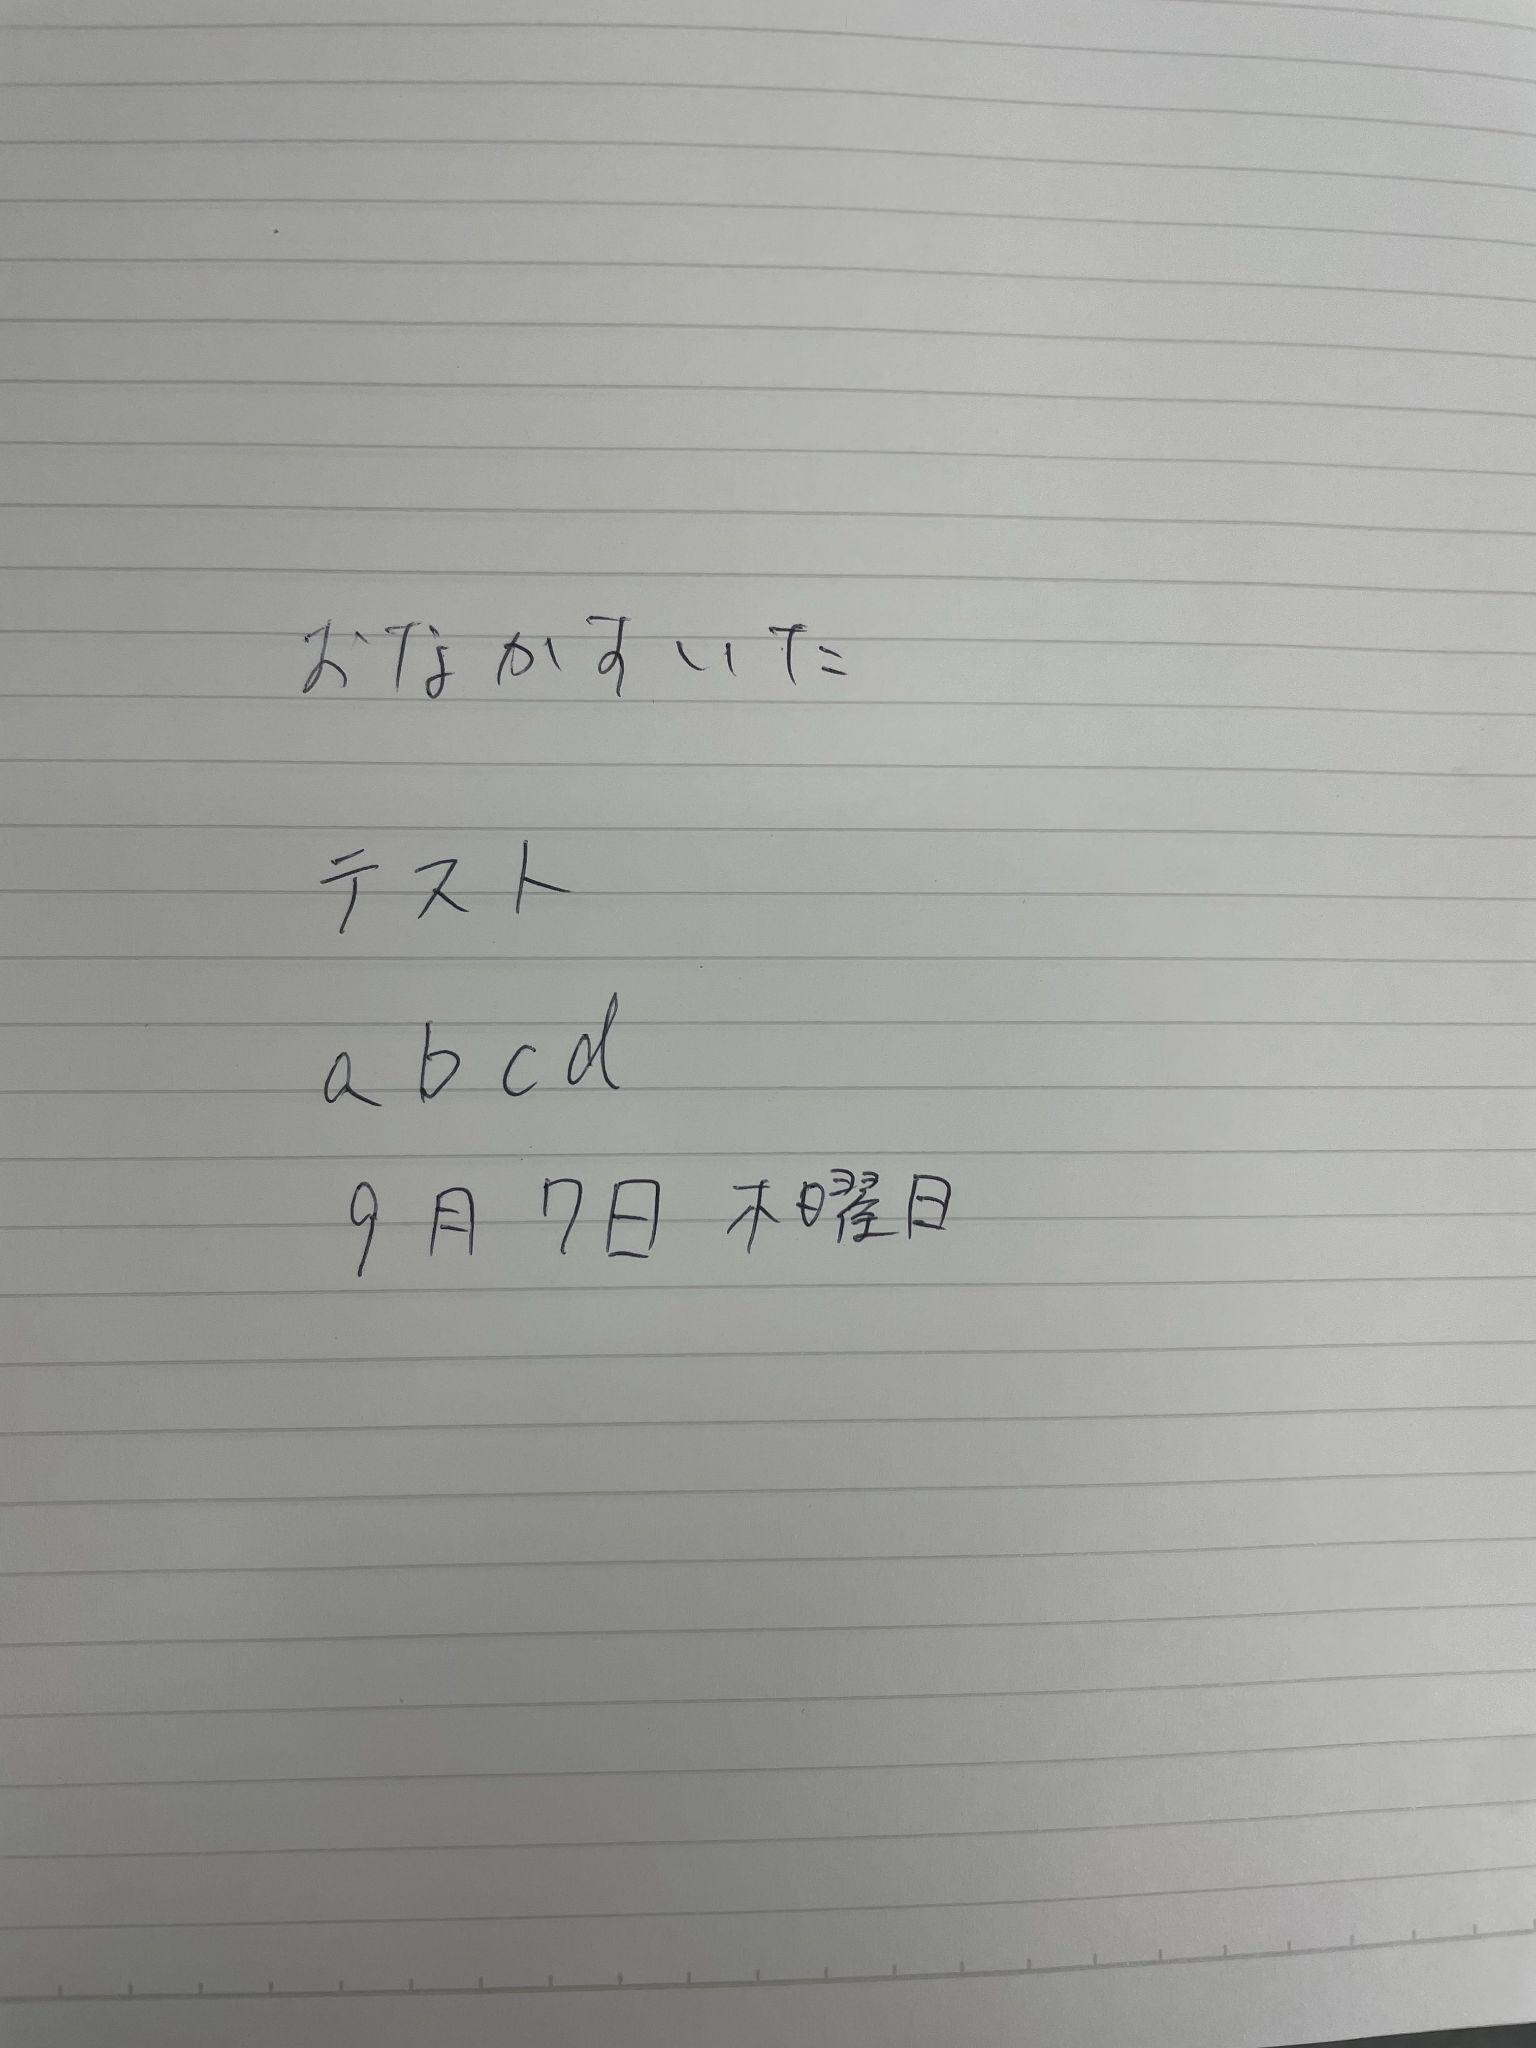 おなかすいた
テスト
abcd
9月7日 木曜日